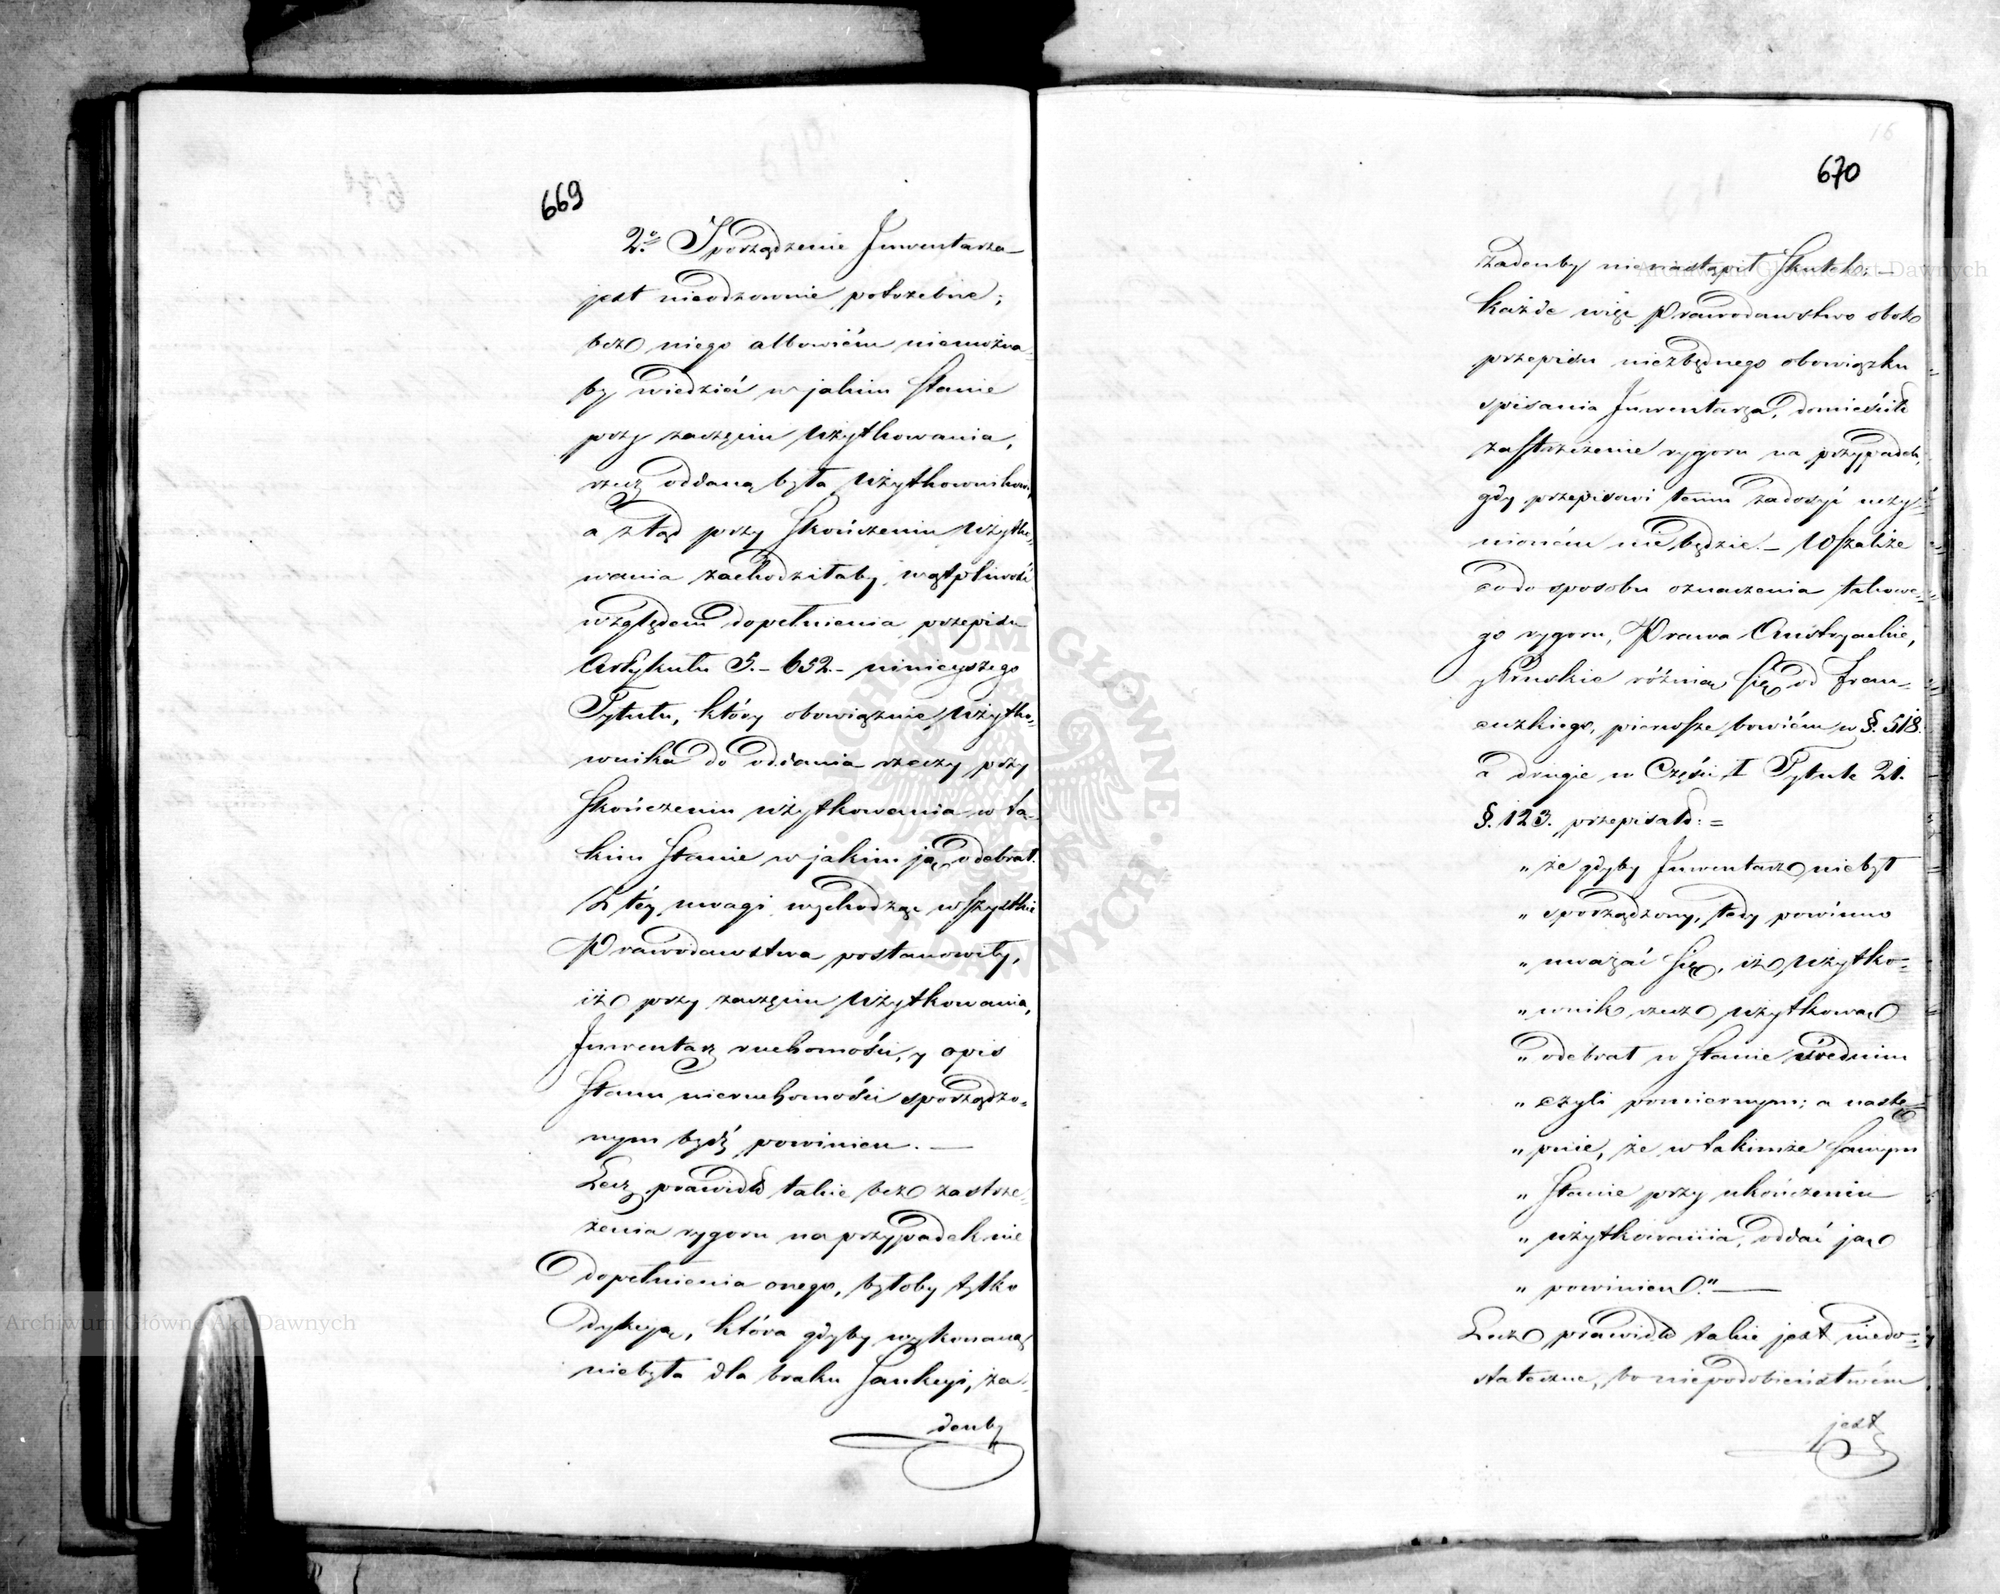 669
2o Sporządzenie Inwentarza
jest nieodzownie potrzebne;
bez niego albowiém niemożna
by wiedzieć w jakim Stanie
przy zaczęciu Użytkowania,
rzecz oddaną była Użytkownikowi,
a ztąd przy Skończeniu Użytko„
wania zachodziłaby wątpliwość
względem dopełnienia przepisu
Artykułu 5.- 652.- ninieyszego
Tytułu, który obowiązuie Użytko„
wnika do oddania rzeczy przy
Skończeniu użytkowania w ta„
kim Stanie w jakim ją odebrał.
Z téy uwagi wychodząc wszystkie
Prawodawstwa postanowiły,
iż przy zaczęciu Użytkowania,
Inwentarz ruchomości, y opis
Stanu nieruchomości sporządzo„
nym bydź powinien. —
Lecz prawidło takie bez zastrze„
żenia rygoru na przypadek nie
dopełnienia onego, byłoby tylko
dykcyą, która gdyby wykonaną
niebyła dla braku Sankcyi, ża„
denby
16
670
żadenby nienastąpił Skutek. —
Każde więc Prawodawstwo obok
przepisu niezbędnego obowiązku
spisania Inwentarza, domieścić
zastrzeżenie rygoru na przypadek,
gdy przepisowi temu zadosyć uczy„
nioném nie będzie. — Wszakże
codo sposobu oznaczenia takowe„
go rygoru, Prawa Austryackie,
y Pruskie różnią się od Fran„
cuzkiego, pierwsze bowiém w §. 518.
a drugie w Części I Tytule 21.
§. 123. przepisało: =
„ że gdyby Inwentarz niebył
„ sporządzony, tedy powinno
„ uważać się, iż Użytko„
„ wnik rzecz użytkową
„ odebrał w Stanie średnim
„ czyli pomiernym; a nastę„
„ pnie, że w takimże samym
„ Stanie przy ukończeniu
„ użytkowania, oddać ją
„ powinien." —
Lecz prawidło takie jest niedo„
stateczne, bo niepodobieństwém
jest
Archiwum Główne Akt Dawnych
Archiwum Główne Akt Dawnych
ARCHIWUM GŁÓWNE AKT DAWNYCH